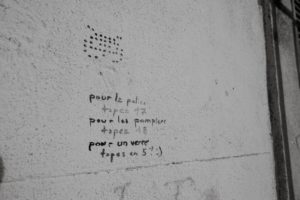 pour la police
tapez 17
pour les pompiers
tapez 18
pour un verre
tapes en 5 :)